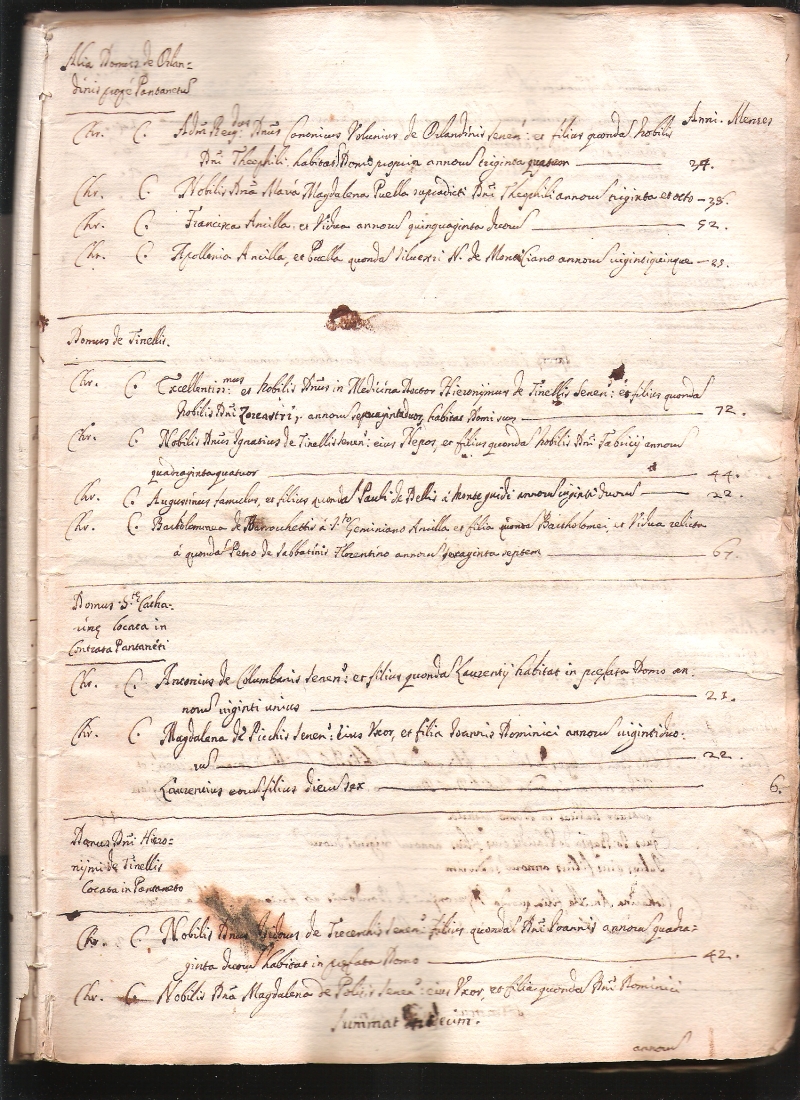 Alia Domus de Orlan=
dinis prope Pantanetu
Anni. Menses
Chr. C. Adm Reu dus Dnus Canonicus Volunius de Orlandinis senen: et filius quonda Nobilis
Dni Theophili, habitat Domo propria annorum triginta quatuor — 34.
Chr. C. Nobilis Dna Maria Magdalena Puella supradicti Dni Theophili annoru triginta et octo — 38.
Chr. C. Francisca Ancilla, et Vidua annoru quinquaginta duoru — 52.
Chr. C. Apollonia Ancilla, et Puella quonda Siluestri N. de annoru uigintiquinque — 25.
Domus de Tinellis.
Chr. C. Excellentiss: mus et Nobilis Dnus in Medicina Doctor Hieronymus de Tinellis senen: et filius quonda
Nobilis Dni Zoroastri, annoru septuagintaduor, habitat Domi suę — 72.
Chr. C. Nobilis Dnus Ignatius de Tinellis senen: eius Nepos, et filius quonda Nobilis Dni Fabricij annoru
quadragintaquatuor — 44.
Chr. C. Augustinus famulus, et filius quonda Pauli de Bellis à Monte guidi annoru uiginti duoru — 22.
Chr. C. Bartolommea de à S.to Geminiano Ancilla et filia quonda Bartholomei, et Vidua relicta
à quonda Petro de Sabbatinis Florentino annoru sexaginta septem — 67.
Domus S.tę Catha=
rinę locata in
Contrata Pantaneti
Chr. C. Antonius de Columbinis senen: et filius quonda Laurentij habitat in prefata Domo an=
noru uiginti unius — 21.
Chr. C. Magdalena de Picchis senen: eius Vxor, et filia Joannis Dominici annoru uigintiduo=
ru — 22.
Laurentius eoru filius dieru sex — 6.
Domus Dni Hiero=
nijmi de Tinellis
Locata in Pantaneto
Chr. C. Nobilis Dnus de senen: filius quonda Dni Joannis annoru quadra=
ginta duoru habitat in prefata Domo — 42.
Chr. C. Nobilis Dna Magdalena de senen: eius Vxor, et filia quonda Dni Dominici
Summat undecim.
annoru